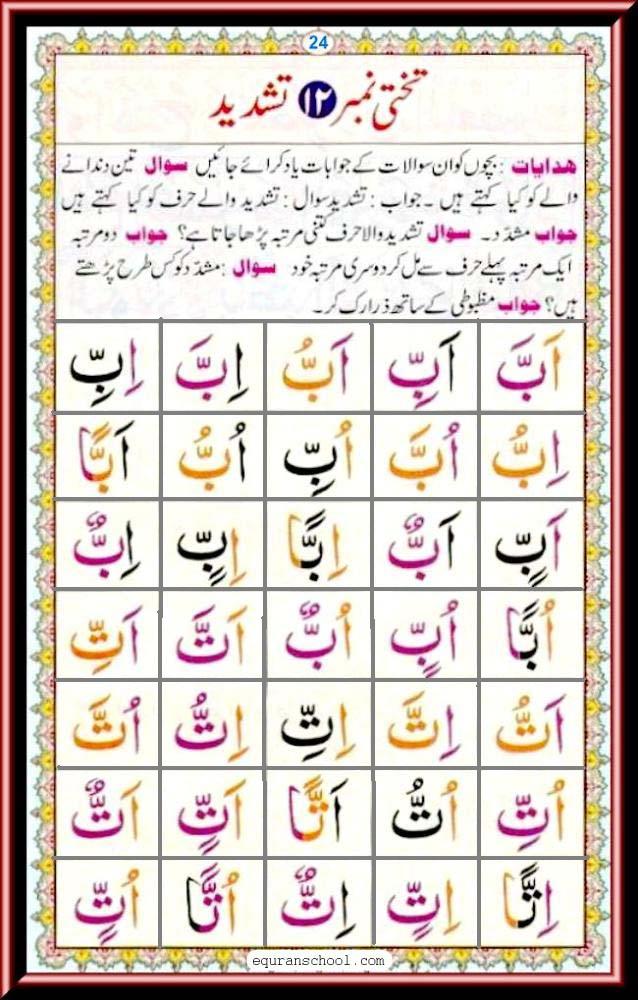 24
تختی نمبر ۱۲ تشدید
ھدایات : بچوں کو ان سوالات کے جوابات یاد کرائے جائیں سوال تین دندانے
والے کو کیا کہتے ہیں ۔ جواب : تشدید سوال : تشدید والے حرف کو کیا کہتے ہیں
جواب مشدّد۔ سوال تشدید والا حرف کتنی مرتبہ پڑھا جاتا ہے؟ جواب دو مرتبہ
ایک مرتبہ پہلے حرف سے مل کر دوسری مرتبہ خود سوال : مشدّد کو کس طرح پڑھتے
ہیں؟ جواب مظبوطی کے ساتھ ذرا رک کر۔
اَبَّ اَبِّ اَبُّ اِبَّ اِبِّ
اِبُّ اُبَّ اُبِّ اُبُّ اَبًّا
اَبٍّ اَبٌّ اِبًّا اِبٍّ اِبٌّ
اُبًّا اُبٍّ اُبٌّ اَتَّ اَتِّ
اَتُّ اِتَّ اِتِّ اِتُّ اُتَّ
اُتِّ اُتُّ اَتًّا اَتٍّ اَتٌّ
اِتًّا اِتٍّ اِتٌّ اُتًّا اُتٍّ
equranschool.com